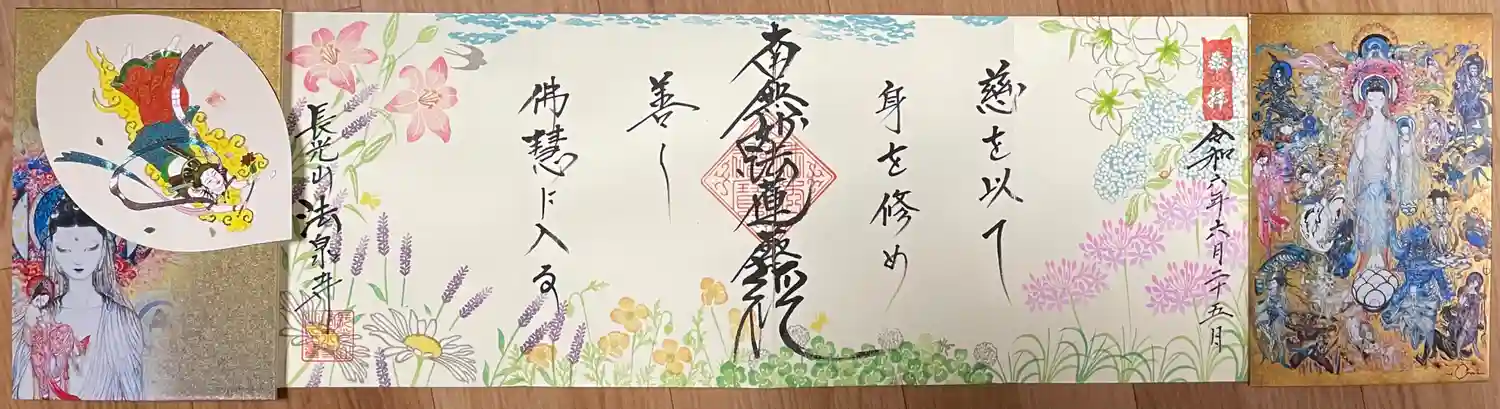 奉拝
令和六年六月二十五日
慈を以て
身を修め
南無妙法蓮華経
善し
佛慧に入る
長光山 法泉寺